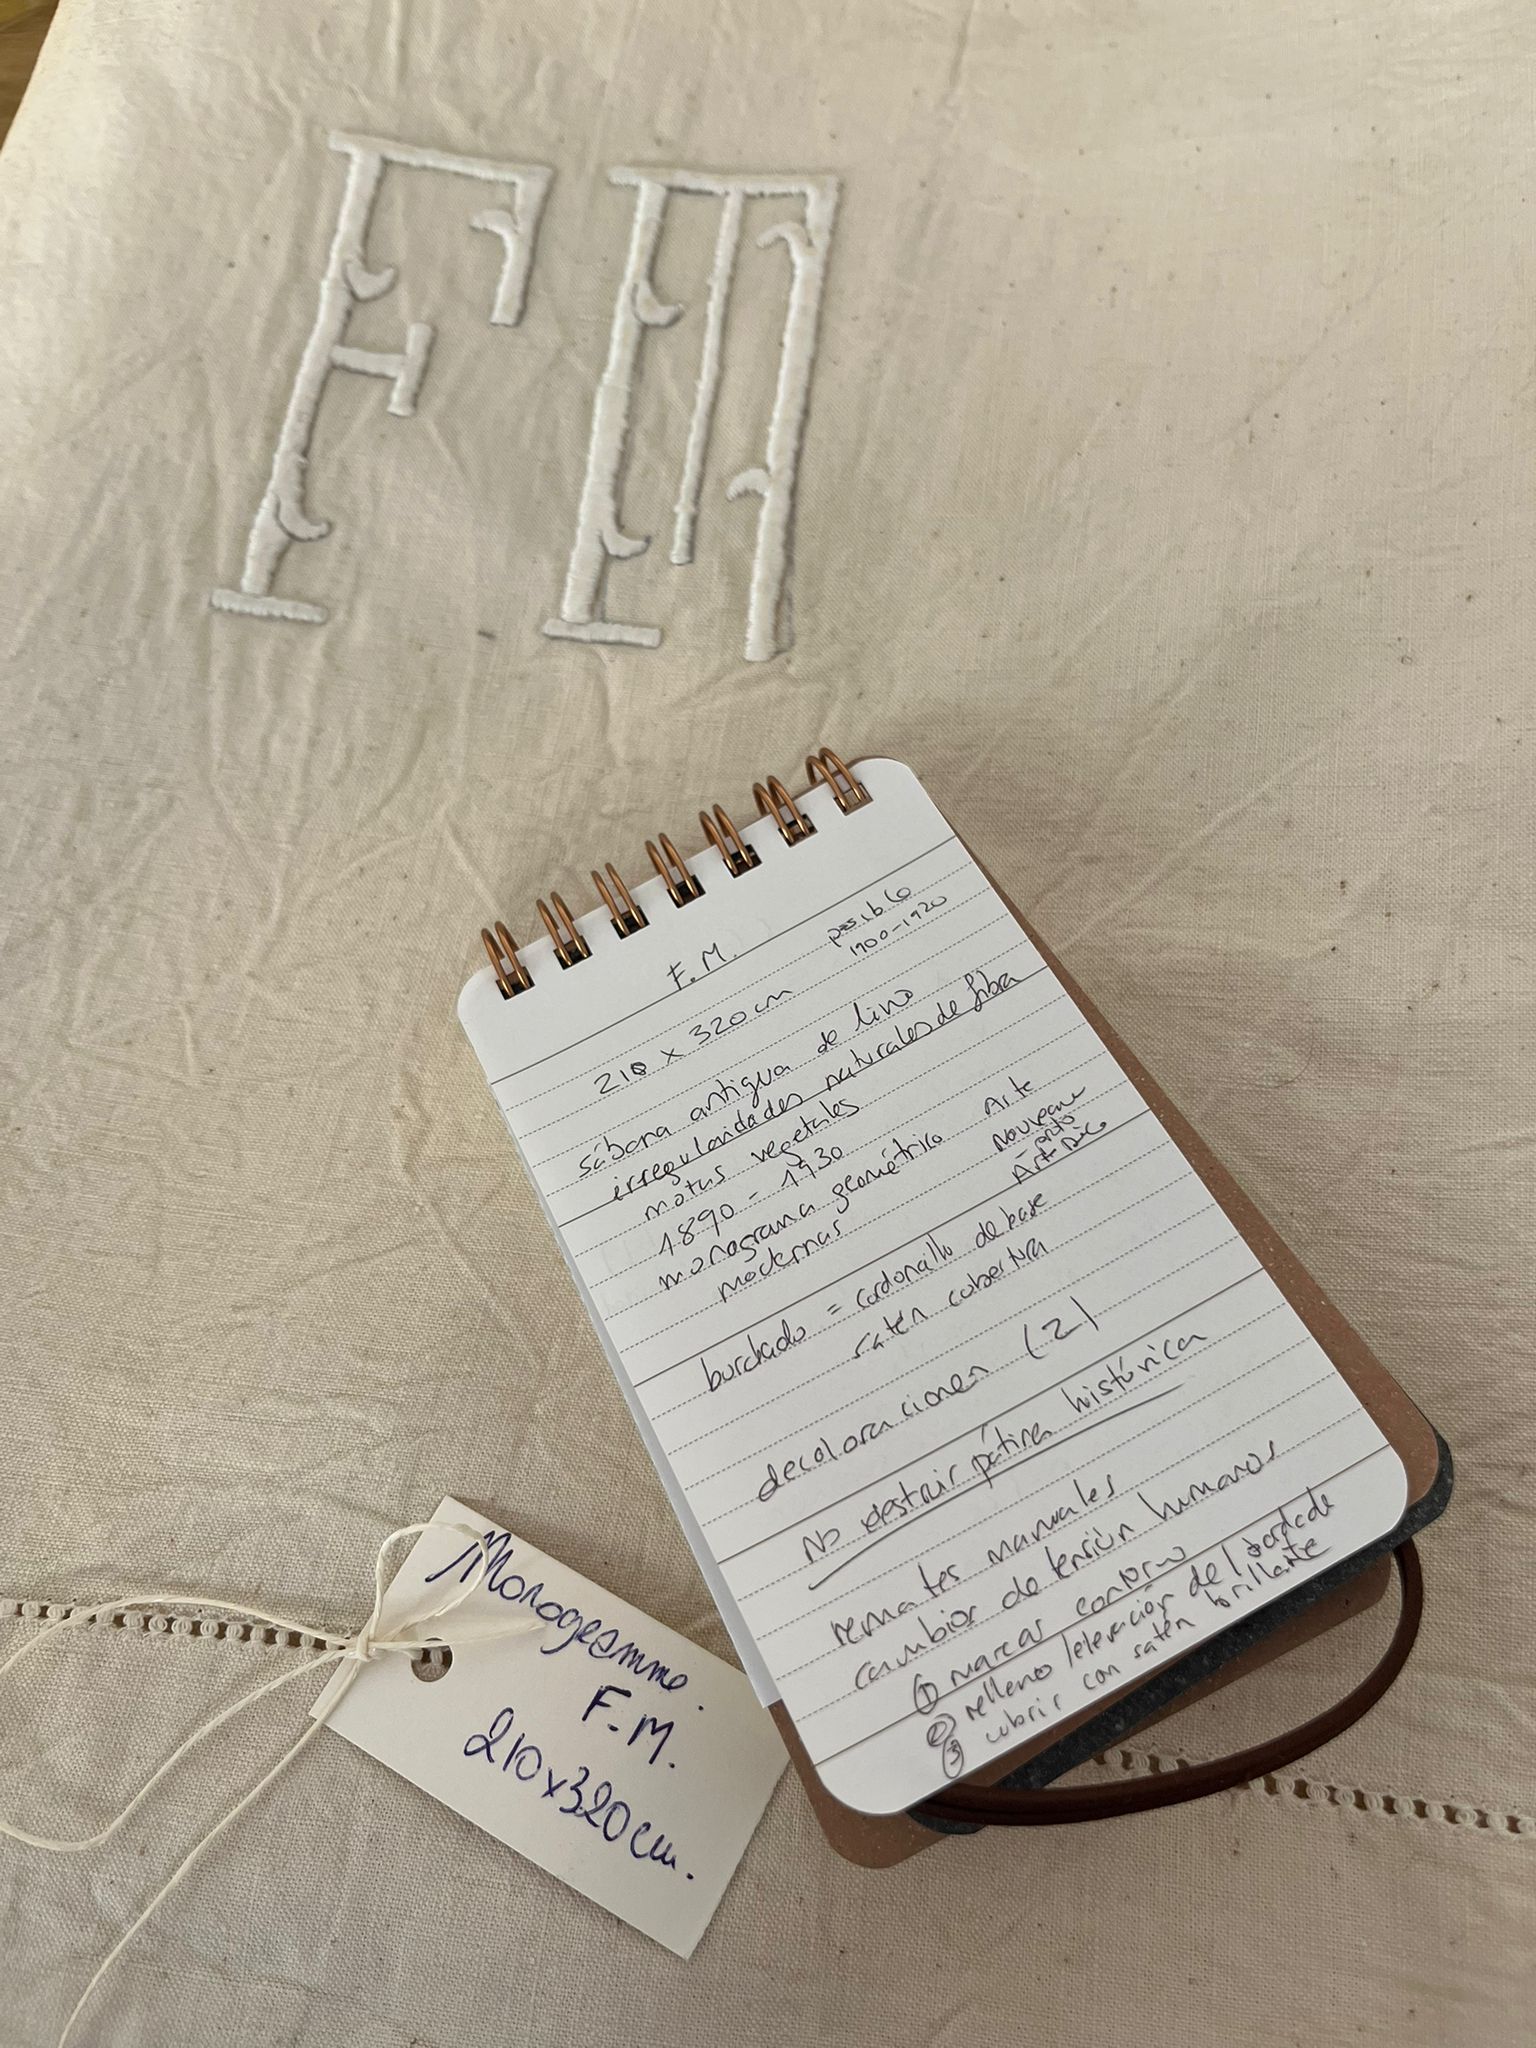 FM
F.M.
posible
1900-1920
210 x 320 cm
sábana antigua de lino
irregularidades naturales de fibra
motus vegetales
1890 - 1930
monograma geométrico
modernas
Arte
Nouveau
Art Déco
burdado = cordonallo de base
satén cobertura
decoloraciones (2)
No destruir pátina histórica
remates manuales
cambior de tensión humanos
① marcar contorno
② relleno / elevación del borde
③ cubrir con satén brillante
Monogramme.
F.M.
210x320cm.